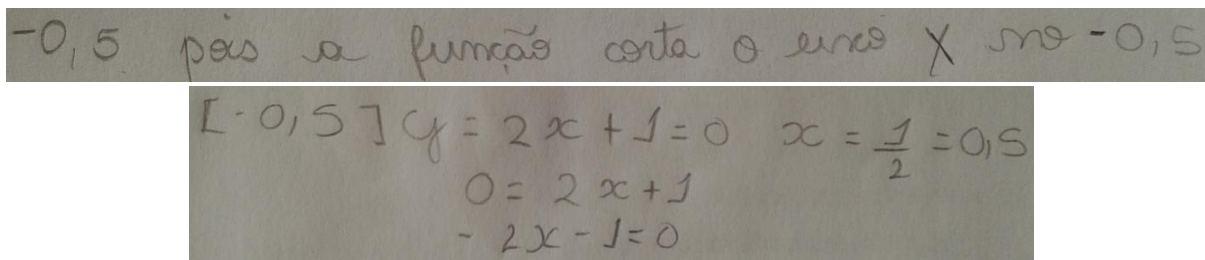 -0,5 pois a função corta o eixo X no -0,5
[-0,5] y = 2x + 1 = 0 x = 1/2 = 0,5
0 = 2x + 1
- 2x - 1 = 0